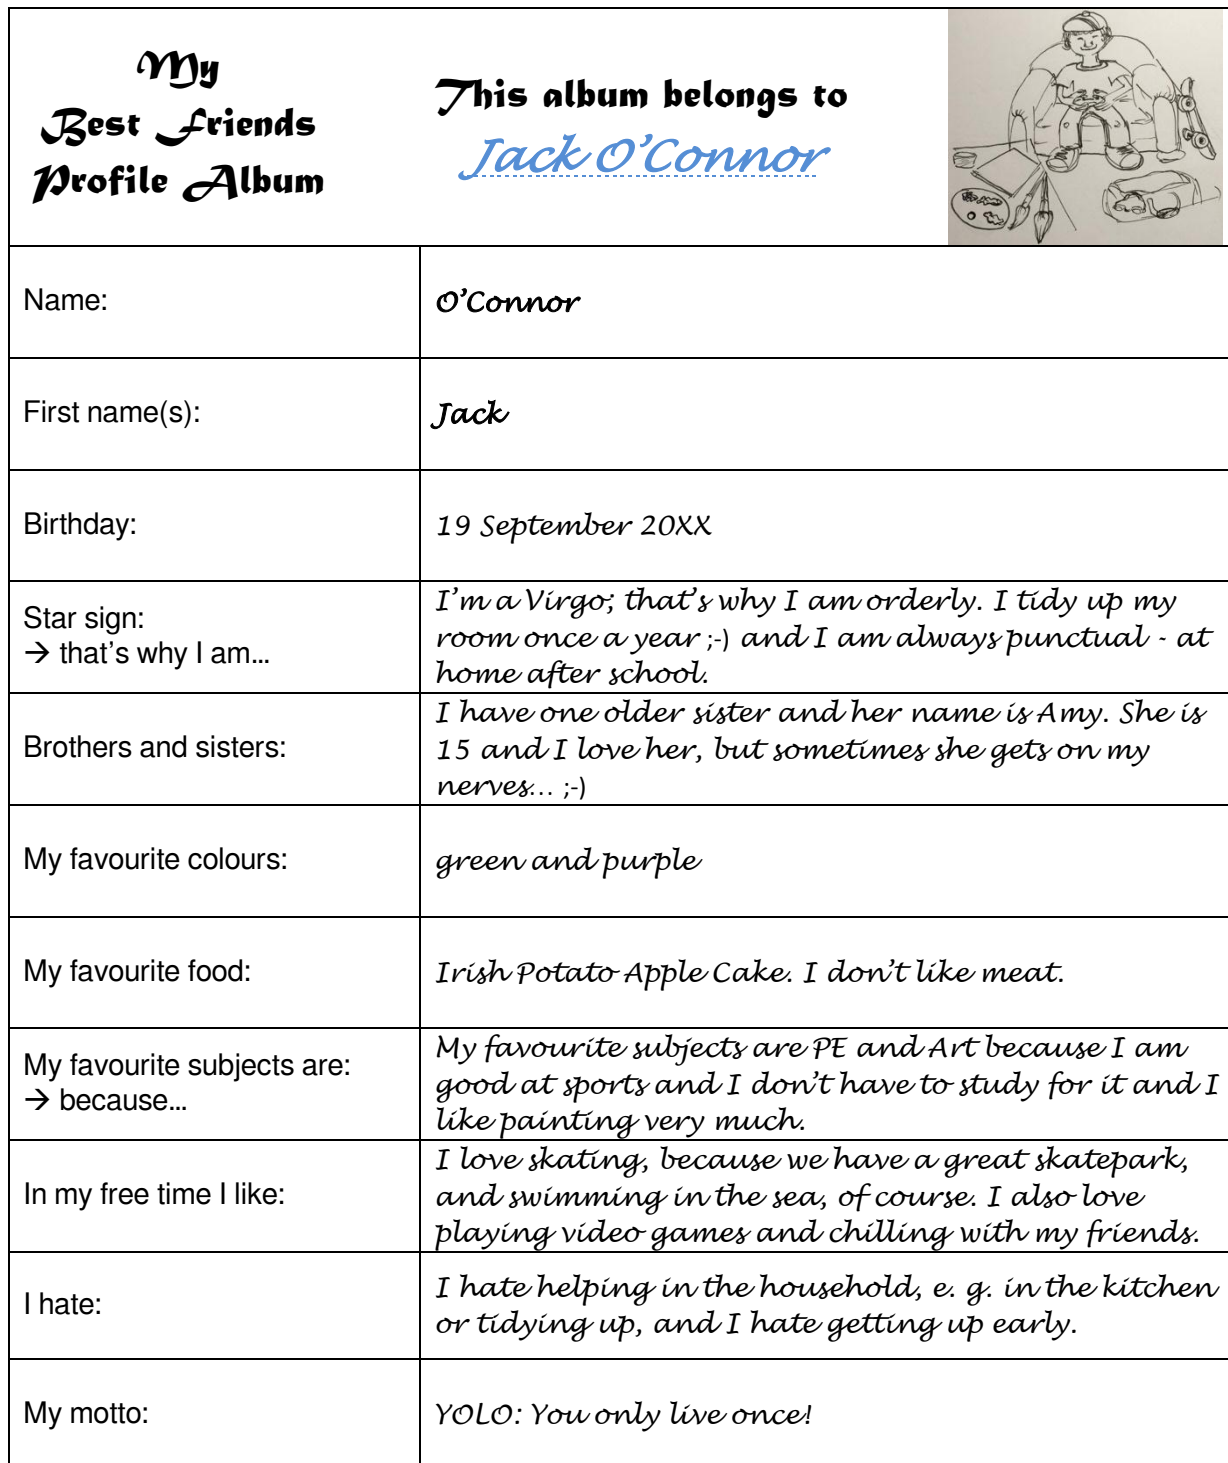 My
Best Friends
Profile Album
This album belongs to
Jack O'Connor
Name:
O'Connor
First name(s):
Jack
Birthday:
19 September 20XX
Star sign:
→ that's why I am...
I'm a Virgo; that's why I am orderly. I tidy up my
room once a year ;-) and I am always punctual - at
home after school.
Brothers and sisters:
I have one older sister and her name is Amy. She is
15 and I love her, but sometimes she gets on my
nerves... ;-)
My favourite colours:
green and purple
My favourite food:
Irish Potato Apple Cake. I don't like meat.
My favourite subjects are:
→ because...
My favourite subjects are PE and Art because I am
good at sports and I don't have to study for it and I
like painting very much.
In my free time I like:
I love skating, because we have a great skatepark,
and swimming in the sea, of course. I also love
playing video games and chilling with my friends.
I hate:
I hate helping in the household, e. g. in the kitchen
or tidying up, and I hate getting up early.
My motto:
YOLO: You only live once!